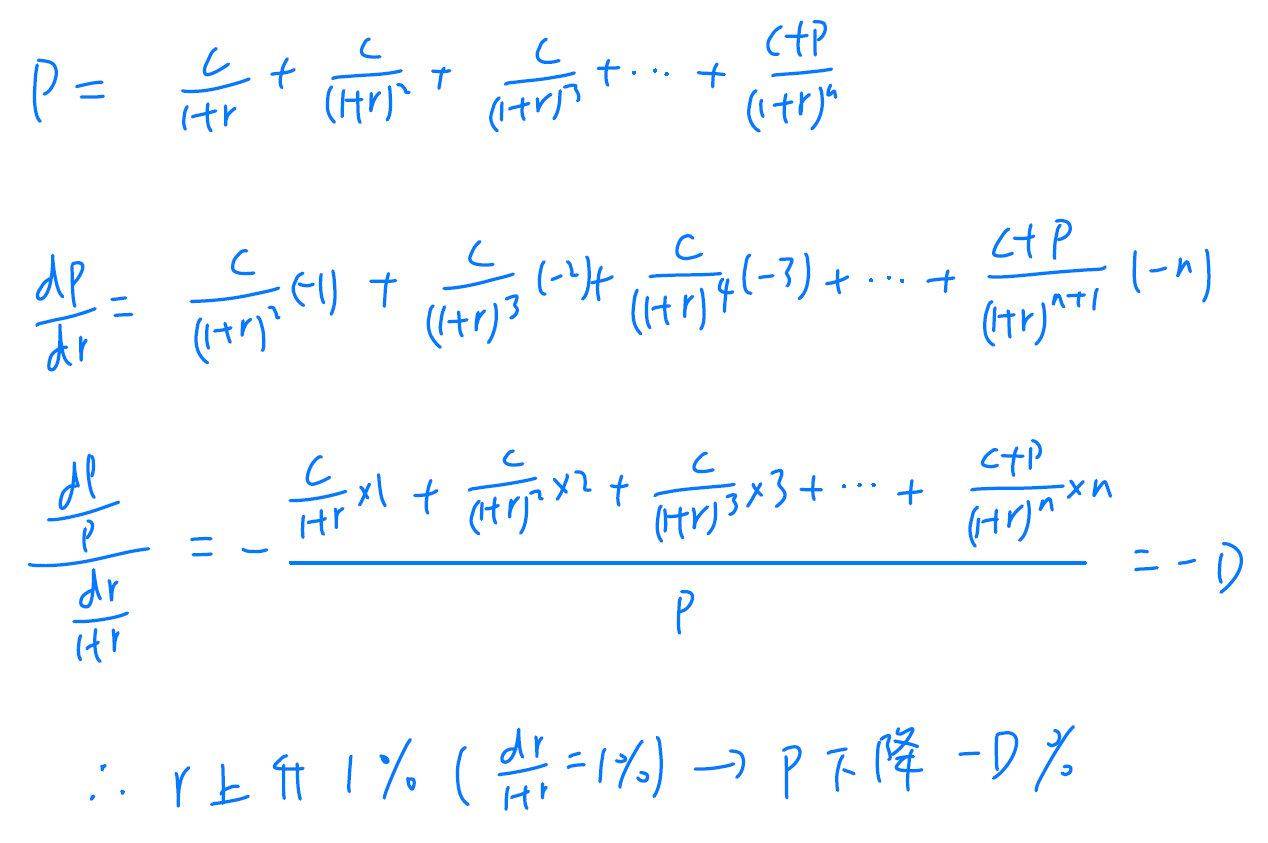 P = C/(1+r) + C/(1+r)² + C/(1+r)³ + ⋯ + (C+P)/(1+r)ⁿ
dP/dr = C/(1+r)² (-1) + C/(1+r)³ (-2) + C/(1+r)⁴ (-3) + ⋯ + (C+P)/(1+r)ⁿ⁺¹ (-n)
(dP/P)/(dr/(1+r)) = - (C/(1+r) ×1 + C/(1+r)² ×2 + C/(1+r)³ ×3 + ⋯ + (C+P)/(1+r)ⁿ ×n)/P = -D
∴ r上升1% (dr/(1+r) = 1%) → P下降 -D%